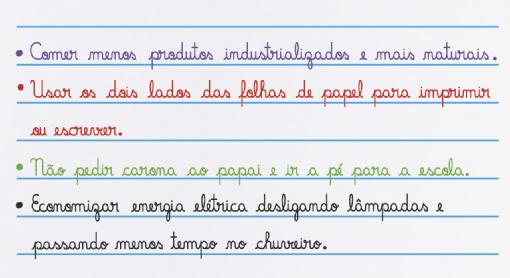 • Comer menos produtos industrializados e mais naturais.
• Usar os dois lados das folhas de papel para imprimir
ou escrever.
• Não pedir carona ao papai e ir a pé para a escola.
• Economizar energia elétrica desligando lâmpadas e
passando menos tempo no chuveiro.